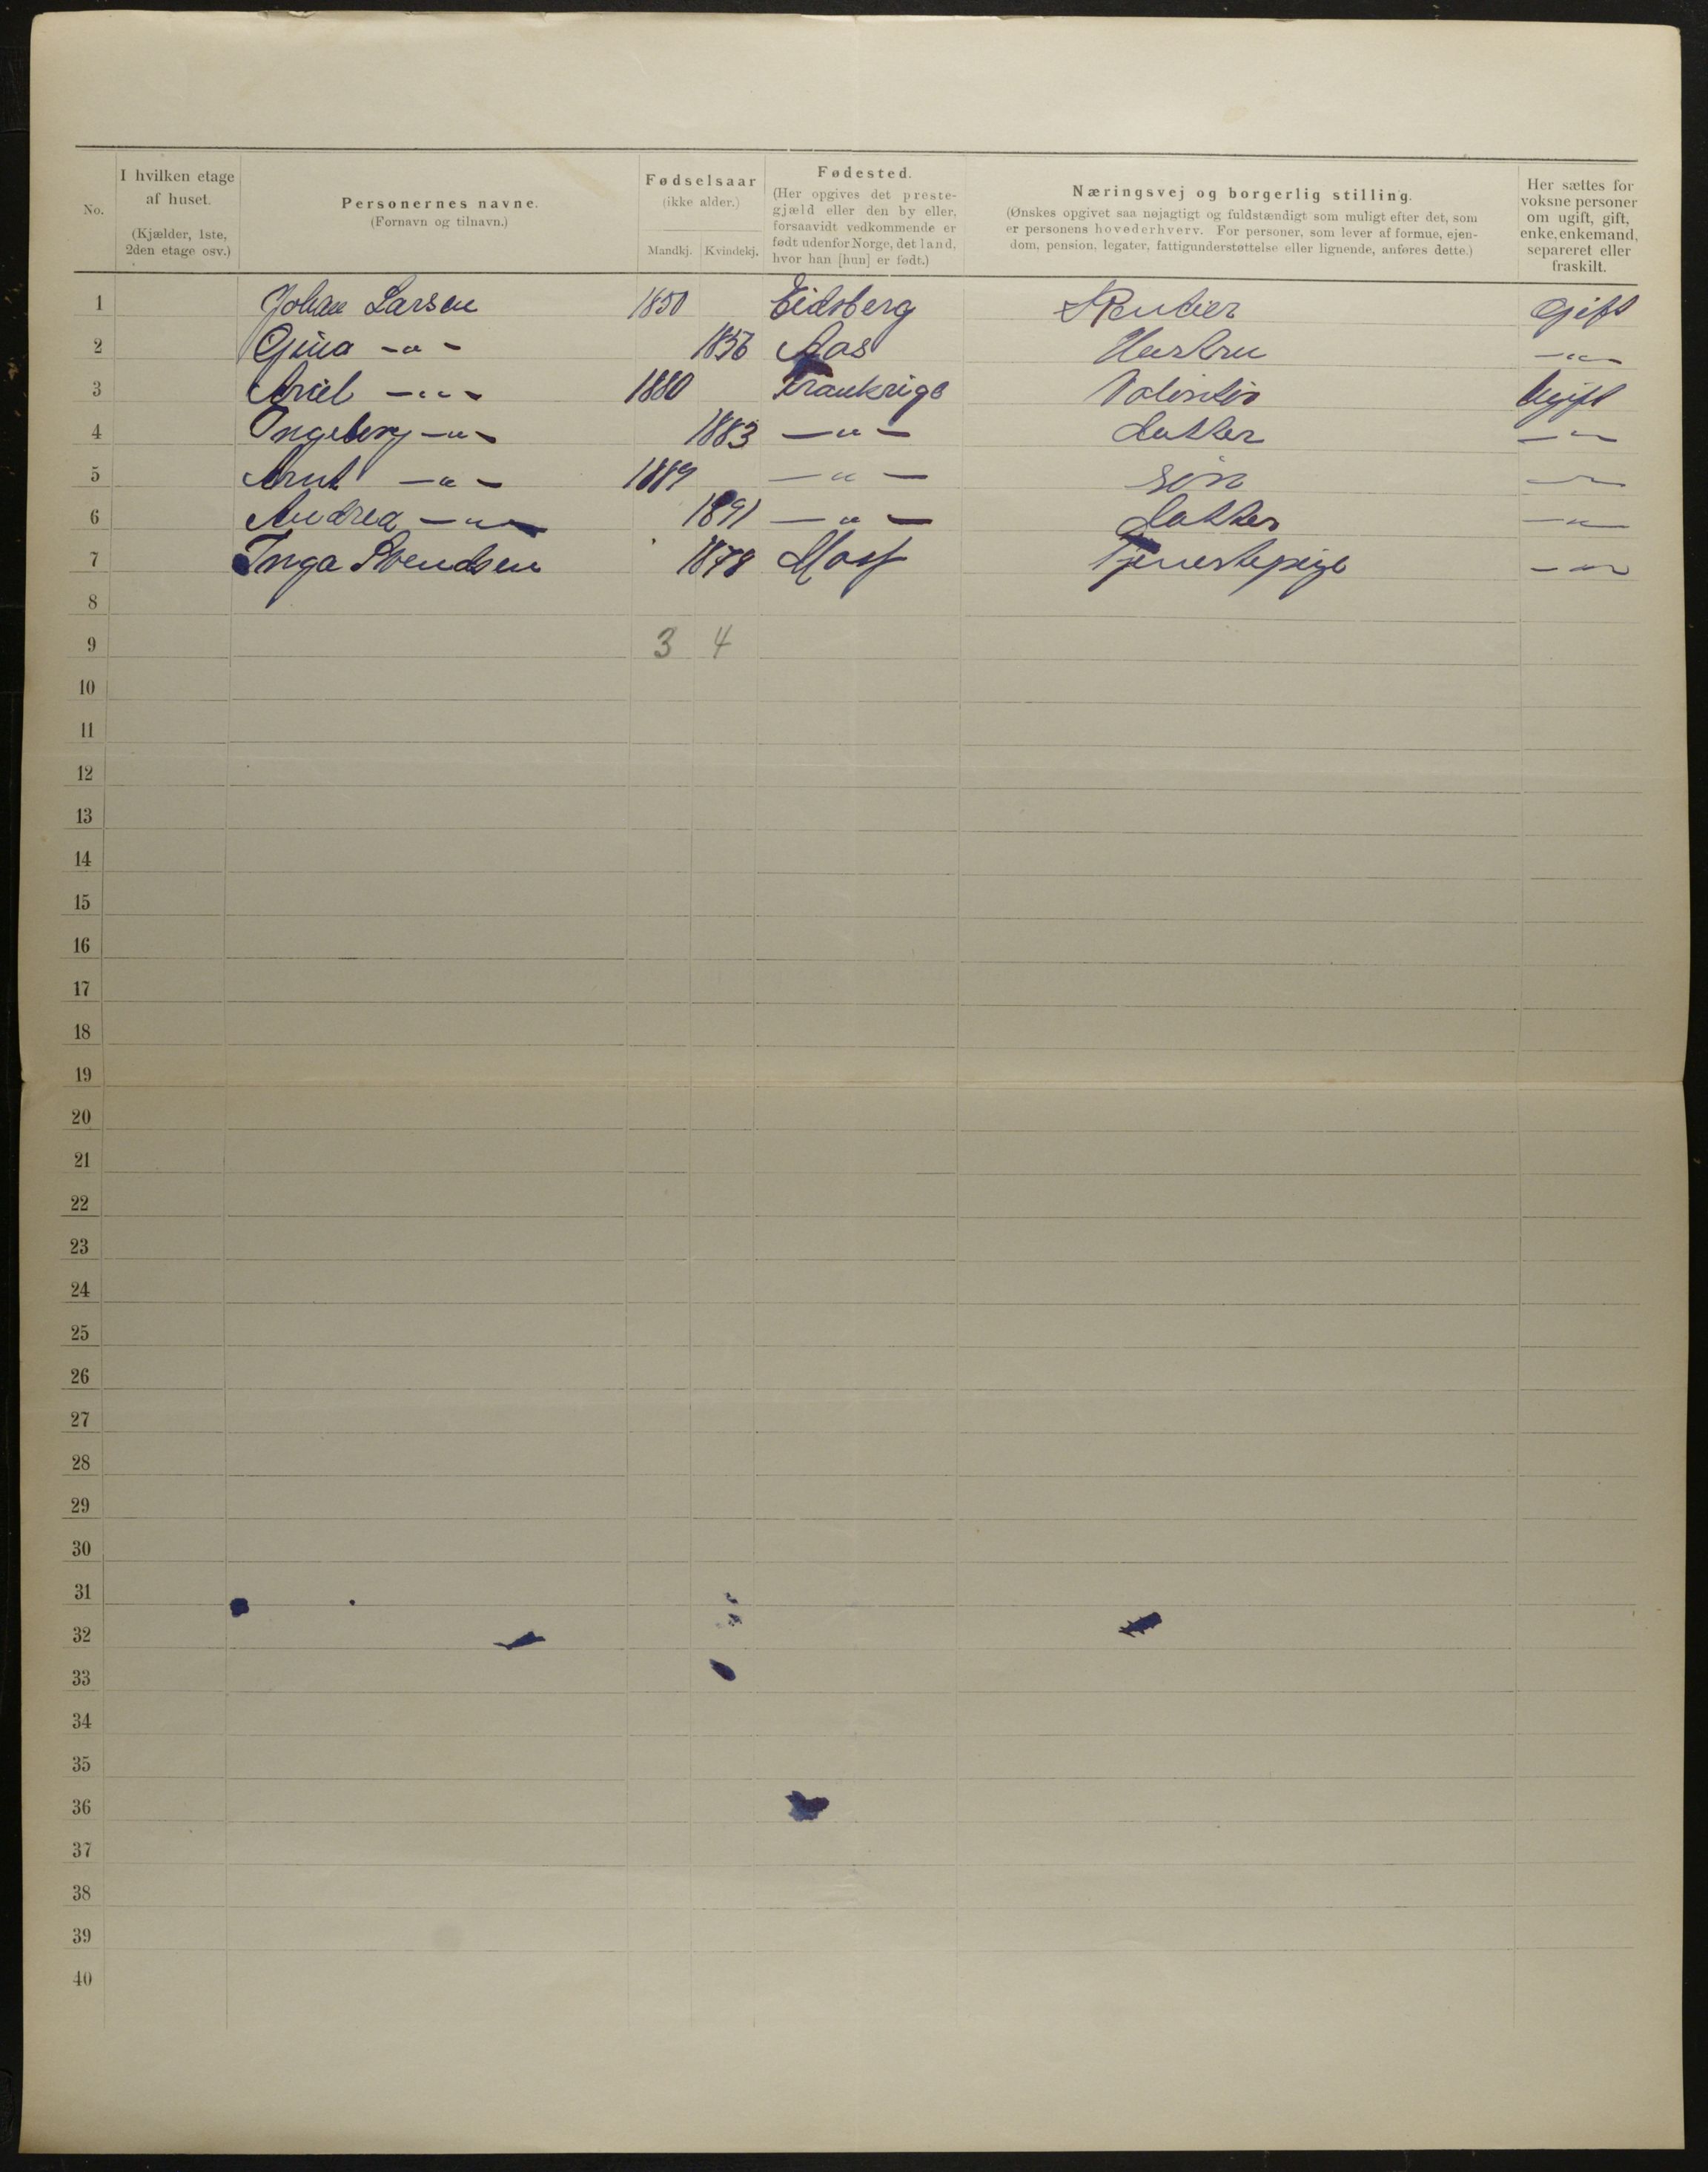 No. | I hvilken etage af huset. (Kjælder, 1ste, 2den etage osv.) | Personernes navne. (Fornavn og tilnavn.) | Fødselsaar (ikke alder.) Mandkj. Kvindekj. | Fødested. (Her opgives det prestegjæld eller den by eller, forsaavidt vedkommende er født udenfor Norge, det land, hvor han [hun] er født.) | Næringsvej og borgerlig stilling. (Ønskes opgivet saa nøjagtigt og fuldstændigt som muligt efter det, som er personens hovederhverv. For personer, som lever af formue, ejendom, pension, legater, fattigunderstøttelse eller lignende, anføres dette.) | Her sættes for voksne personer om ugift, gift, enke, enkemand, separeret eller fraskilt.
1 Johan Larsen 1850 Eidsberg Rentier Gift
2 Gina -"- 1856 Aas Hustru -"-
3 -"- 1880 Frankrige Ugift
4 Ingeborg -"- 1883 -"- datter -"-
5 Arnt -"- 1889 -"- søn -"-
6 Andrea -"- 1891 -"- datter -"-
7 Inga Svendsen 1878 Moss Tjenestepige -"-
8
9 3 4
10
11
12
13
14
15
16
17
18
19
20
21
22
23
24
25
26
27
28
29
30
31
32
33
34
35
36
37
38
39
40